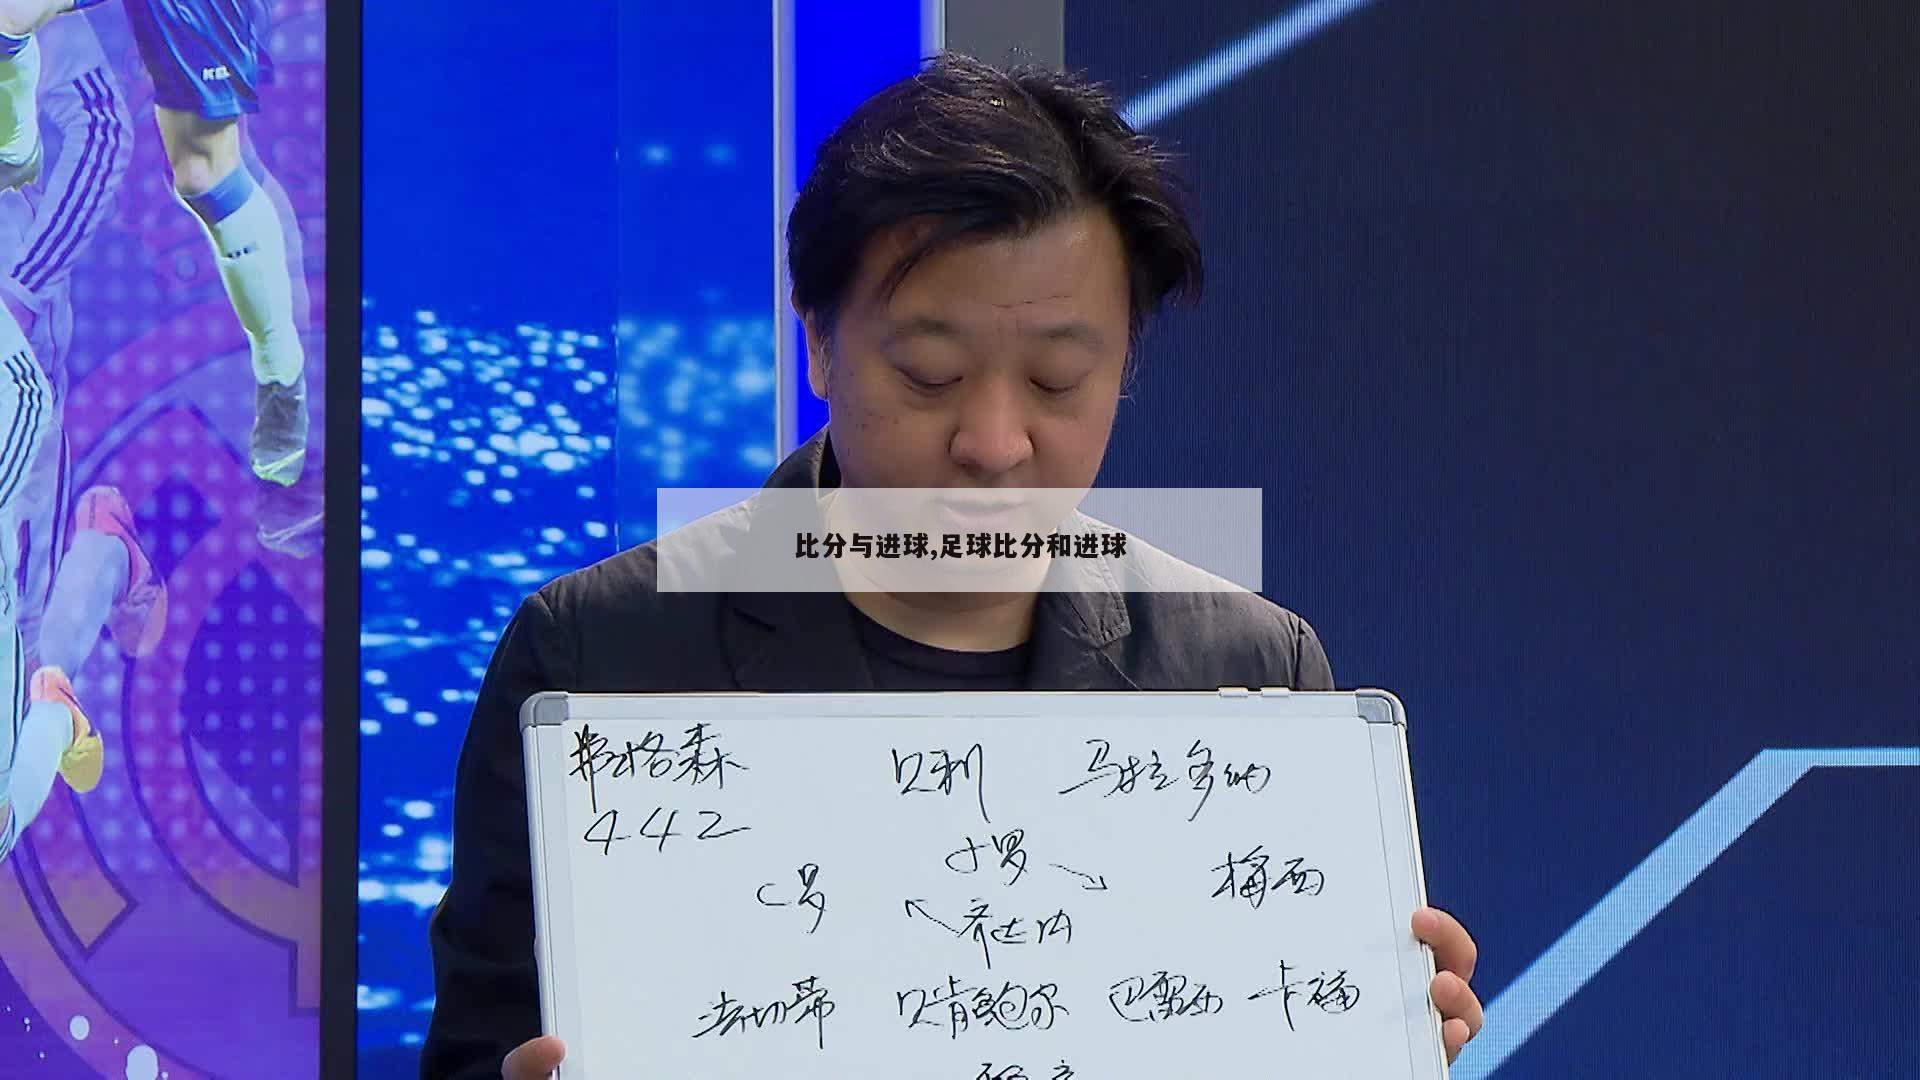 比分与进球,足球比分和进球
弗格森 贝利 马拉多纳
442
C罗 大罗 梅西
齐达内
法切蒂 贝肯鲍尔 巴雷西 卡福